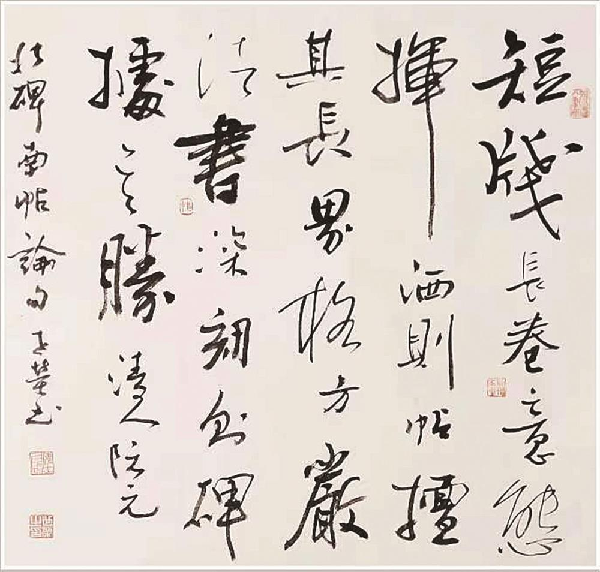 短牋長卷意態
揮洒則帖擅
其長界格方嚴
法書深刻則碑
據其勝清人阮元
北碑南帖論句